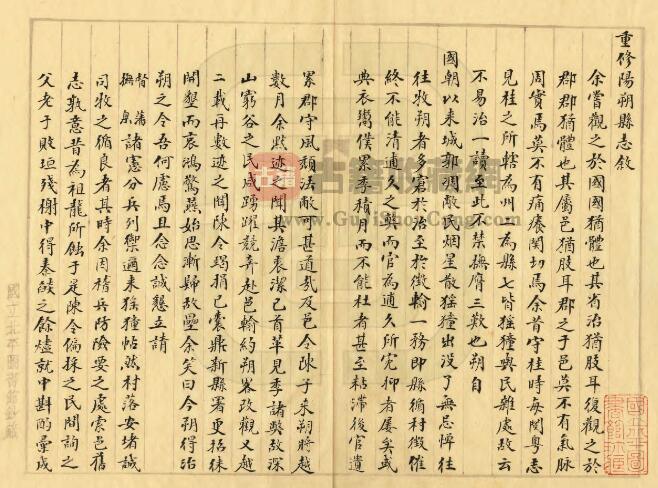 重修陽朔縣志敘
余嘗觀之於國國猶體也其省治猶股耳復觀之於
郡郡猶體也其屬邑猶肢耳郡之于邑莫不有氣脉
周貫焉莫不有痛癢関切焉余昔守桂時每閱粵志
見桂之所轄為州二為縣七皆猺獞與民雜處故云
不易治一讀至此不禁撫膺三歎也朔自
國朝以来城郭凋敝民烟星散猺獞出没了無忌憚往
往牧朔者多寄於治至於徵輸一務即縣循村徵催
終不能清逋久之奥而官為逋久所寃抑者屡矣或
典衣鬻僕累季積月而不能杜者甚至粘滯後官遺
累郡守風頽法敝可甚道㦲及邑令陳子来朔時越
數月余默迹之聞其澹衷潔己首革見季諸弊故深
山窮谷之民咸踴躍競奔赴邑輸約朔峇改觀又越
二載再數迹之聞陳令捐己囊鼎新縣署更招徠
開墾而哀鴻驚燕始思漸歸故壘余笑曰今朔得治
朔之令吾何慮焉且念念誠懇立請
督撫藩臬諸憲分兵列禦適来猺獞帖然村落安堵誠
司牧之循良者其時余因稽兵防險要之處索邑舊
志敦意昔為祖龍所蝕于是陳令偏採之民間詢之
父老于敗垣殘榭中得秦燄之餘燼就中斟酌彙成
國立北平圖書館鈔藏
古籍收藏网
www.GuJiShouCang.com